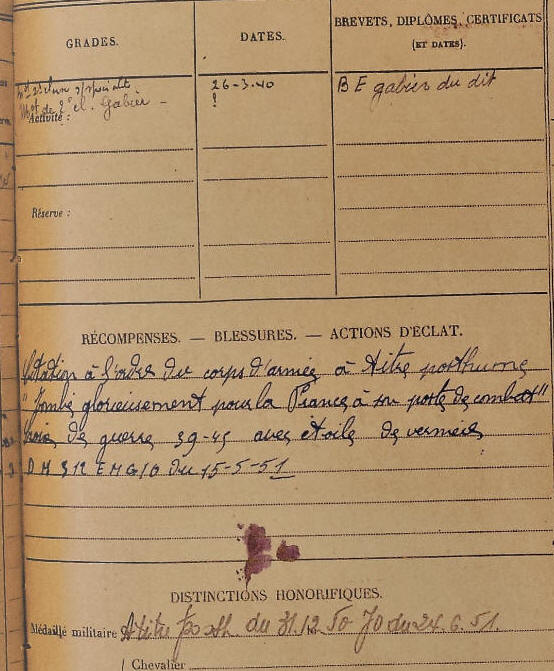 GRADES.
DATES.
BREVETS, DIPLÔMES, CERTIFICATS
(ET DATES).
26-3-40
B E gabier du dit
Mot de 2e cl. Gabier -
Activité :
Réserve :
RÉCOMPENSES. — BLESSURES. — ACTIONS D'ÉCLAT.
Citation à l'ordre du corps d'armée à titre posthume
"Tombé glorieusement pour la France à son poste de combat"
Croix de guerre 39-45 avec étoile de vermeil
D M 312 EMG/O du 15-5-51
DISTINCTIONS HONORIFIQUES.
Médaillé militaire A titre posth. du 31.12.50 JO du 24.6.51.
Chevalier